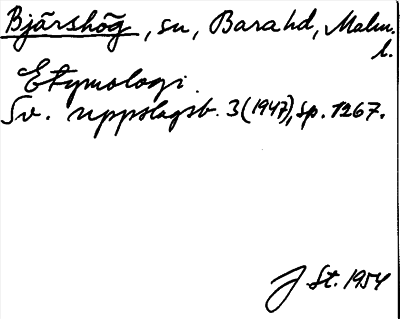 Bjärshög, sn, Bara hd, Malm.
l.
Etymologi.
Sv. uppslagsb. 3 (1947), sp. 1267.
J St. 1954